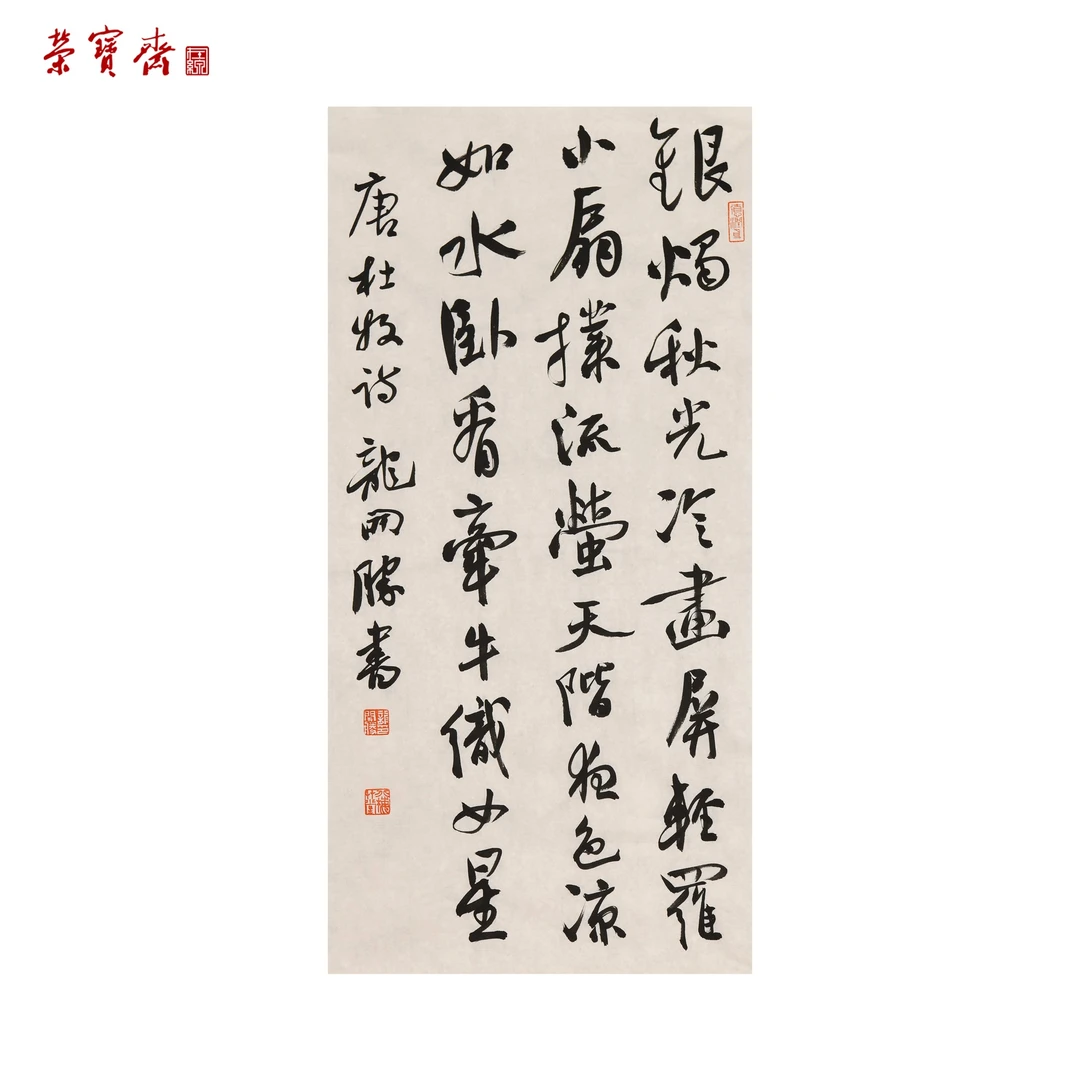 榮寶齋
銀燭秋光冷畫屏輕羅
小扇撲流螢天階夜色涼
如水卧看牽牛織女星
唐杜牧詩 龍開勝書